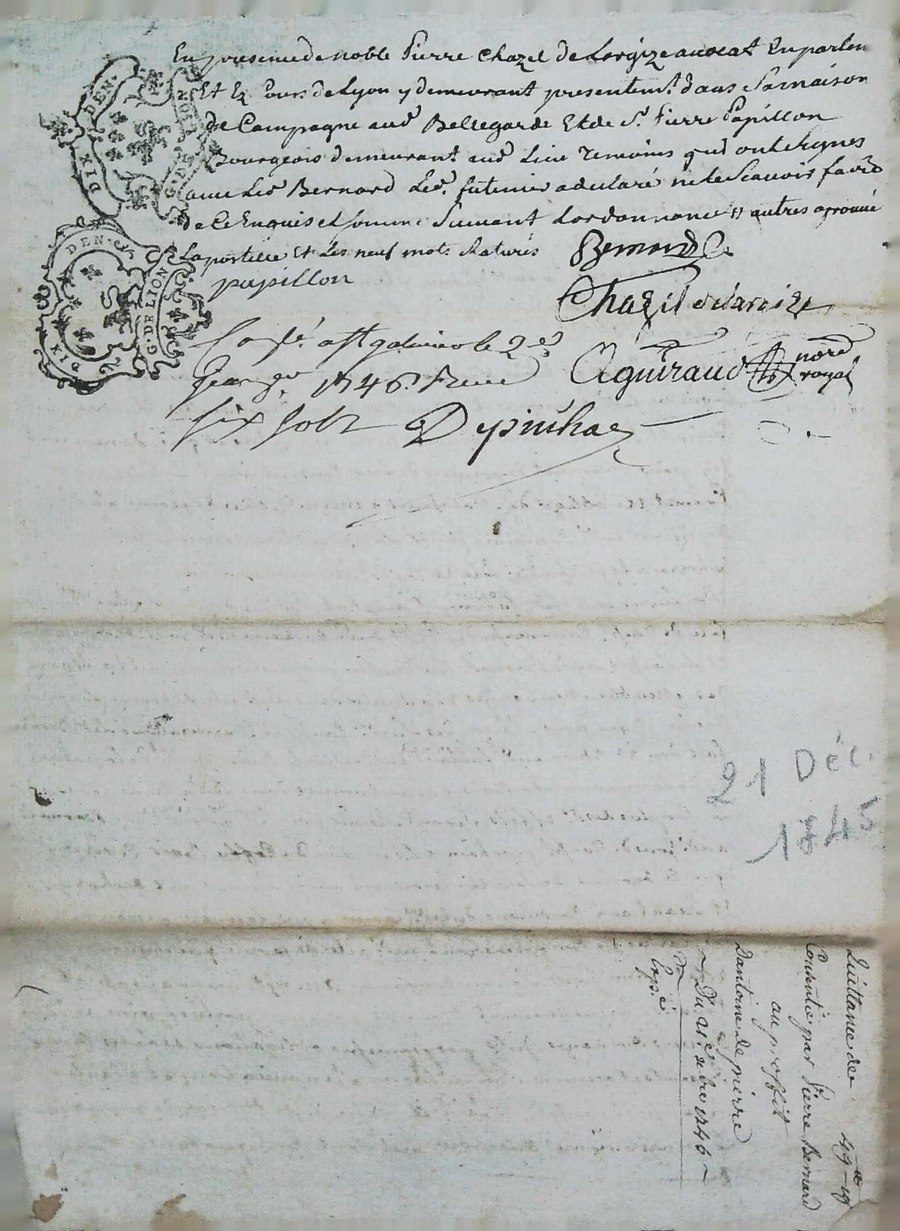 En presence de noble Pierre Chazel de Lorgize avocat En parlem
Et Ez Cours de Lyon y demeurant presentemt. dans Sa maison
de Campagne aud. Bellegarde Et de Sr. Pierre Papillon
Bourgeois demeurant aud. Lieu temoins qui ont Signes
avec led. Bernard a declaré ne le Scavoir faire
de Ce Enquis et Somme Suivant Lordonnance autres aprouvé
La postille Et Les neuf mots Raturés
Bernard
papillon
Chazel
DIX DEN.
G. DE LION
DIX DEN.
G. DE LION
Contlé. a St galmier le 2e
Janver 1746. Receu
Six Solz
Aguiraud nore
royal
21 Déc.
1745
Quittance de 49
Consentie par Pierre Bernard
au proffit
Dantoine de pierre
Du 21e. xbre 1745
Exp.é